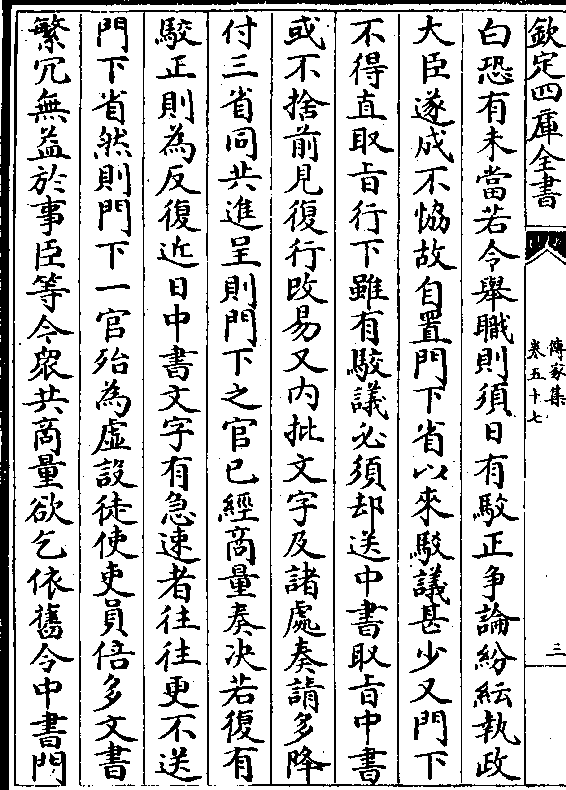 欽定四庫全書
傳家集
卷五十七
三
白恐有未當若令舉職則須日有駮正争論紛紜執政
大臣遂成不恊故自置門下省以來駮議甚少又門下
不得直取旨行下雖有駮議必須却送中書取旨中書
或不捨前見復行改易又内批文字及諸處奏請多降
付三省同共進呈則門下之官已經商量奏决若復有
駮正則為反復近日中書文字有急速者往往更不送
門下省然則門下一官殆為虚設徒使吏員倍多文書
繁冗無益於事臣等今衆共商量欲乞依舊令中書門